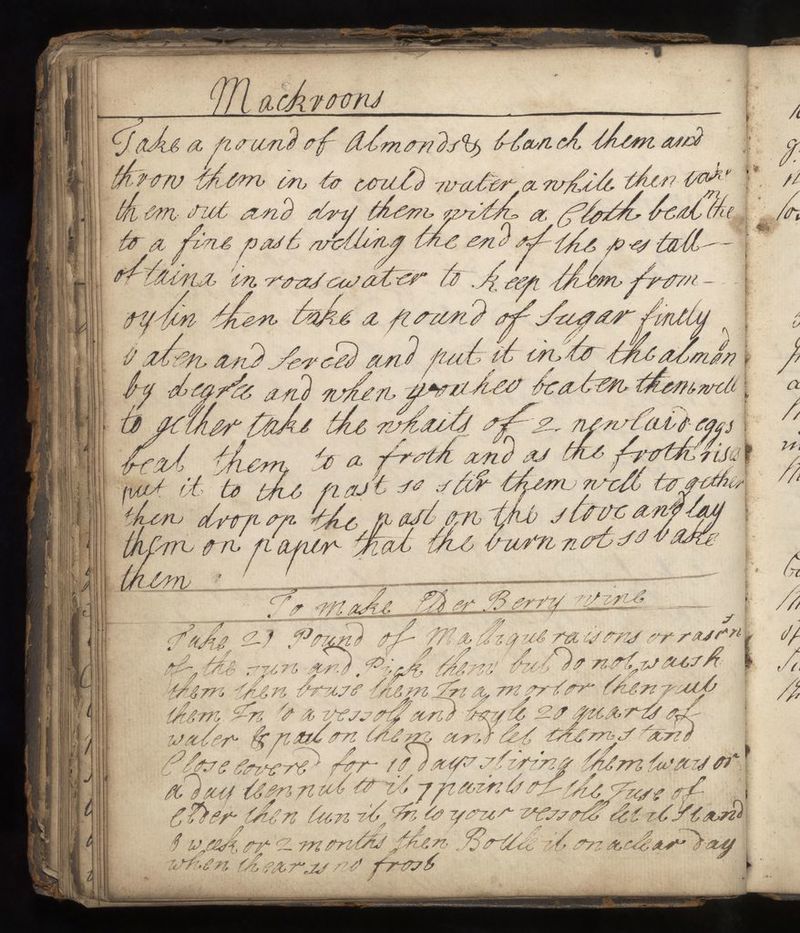 Mackroons
Take a pound of Almonds & blanch them and
throw them in to could water a while then take
them out and dry them with a Cloth beat them
to a fine past wetting the end of the pestall
oftain a in roasewater to keep them from
oylin then take a pound of sugar finely
beaten and serced and put it in to the almon
by degree and when you hev beaten them well
to gether take the whaits of 2 new laid eggs
beat them to a froth and as the froth rises
put it to the past so stir them well to gether
then drop on the past on the stove and lay
them on paper that the burn not so bake
them
To make Elder Berry wine
Take 2) Pound of Mallique raisons or rasons
of the sun and Pick them but do not waish
them then brouse them In a mortor then put
them In to a vessoll and boyle 20 quarts of
water & pour on them and let them stand
Close covered for 10 days stiring them twais or
a day then put to it 7 paints of the Juse of
Elder then tun it In to your vessoll let it stand
week or 2 months then Bottle it on a clear day
when thear is no frost